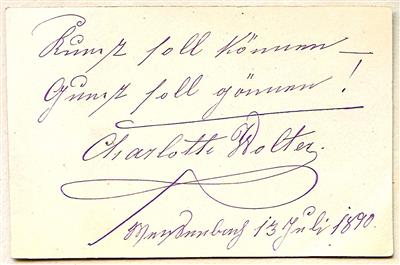 Kunst soll können —
Gunst soll gönnen!
Charlotte Wolter.
13 Juli 1890.